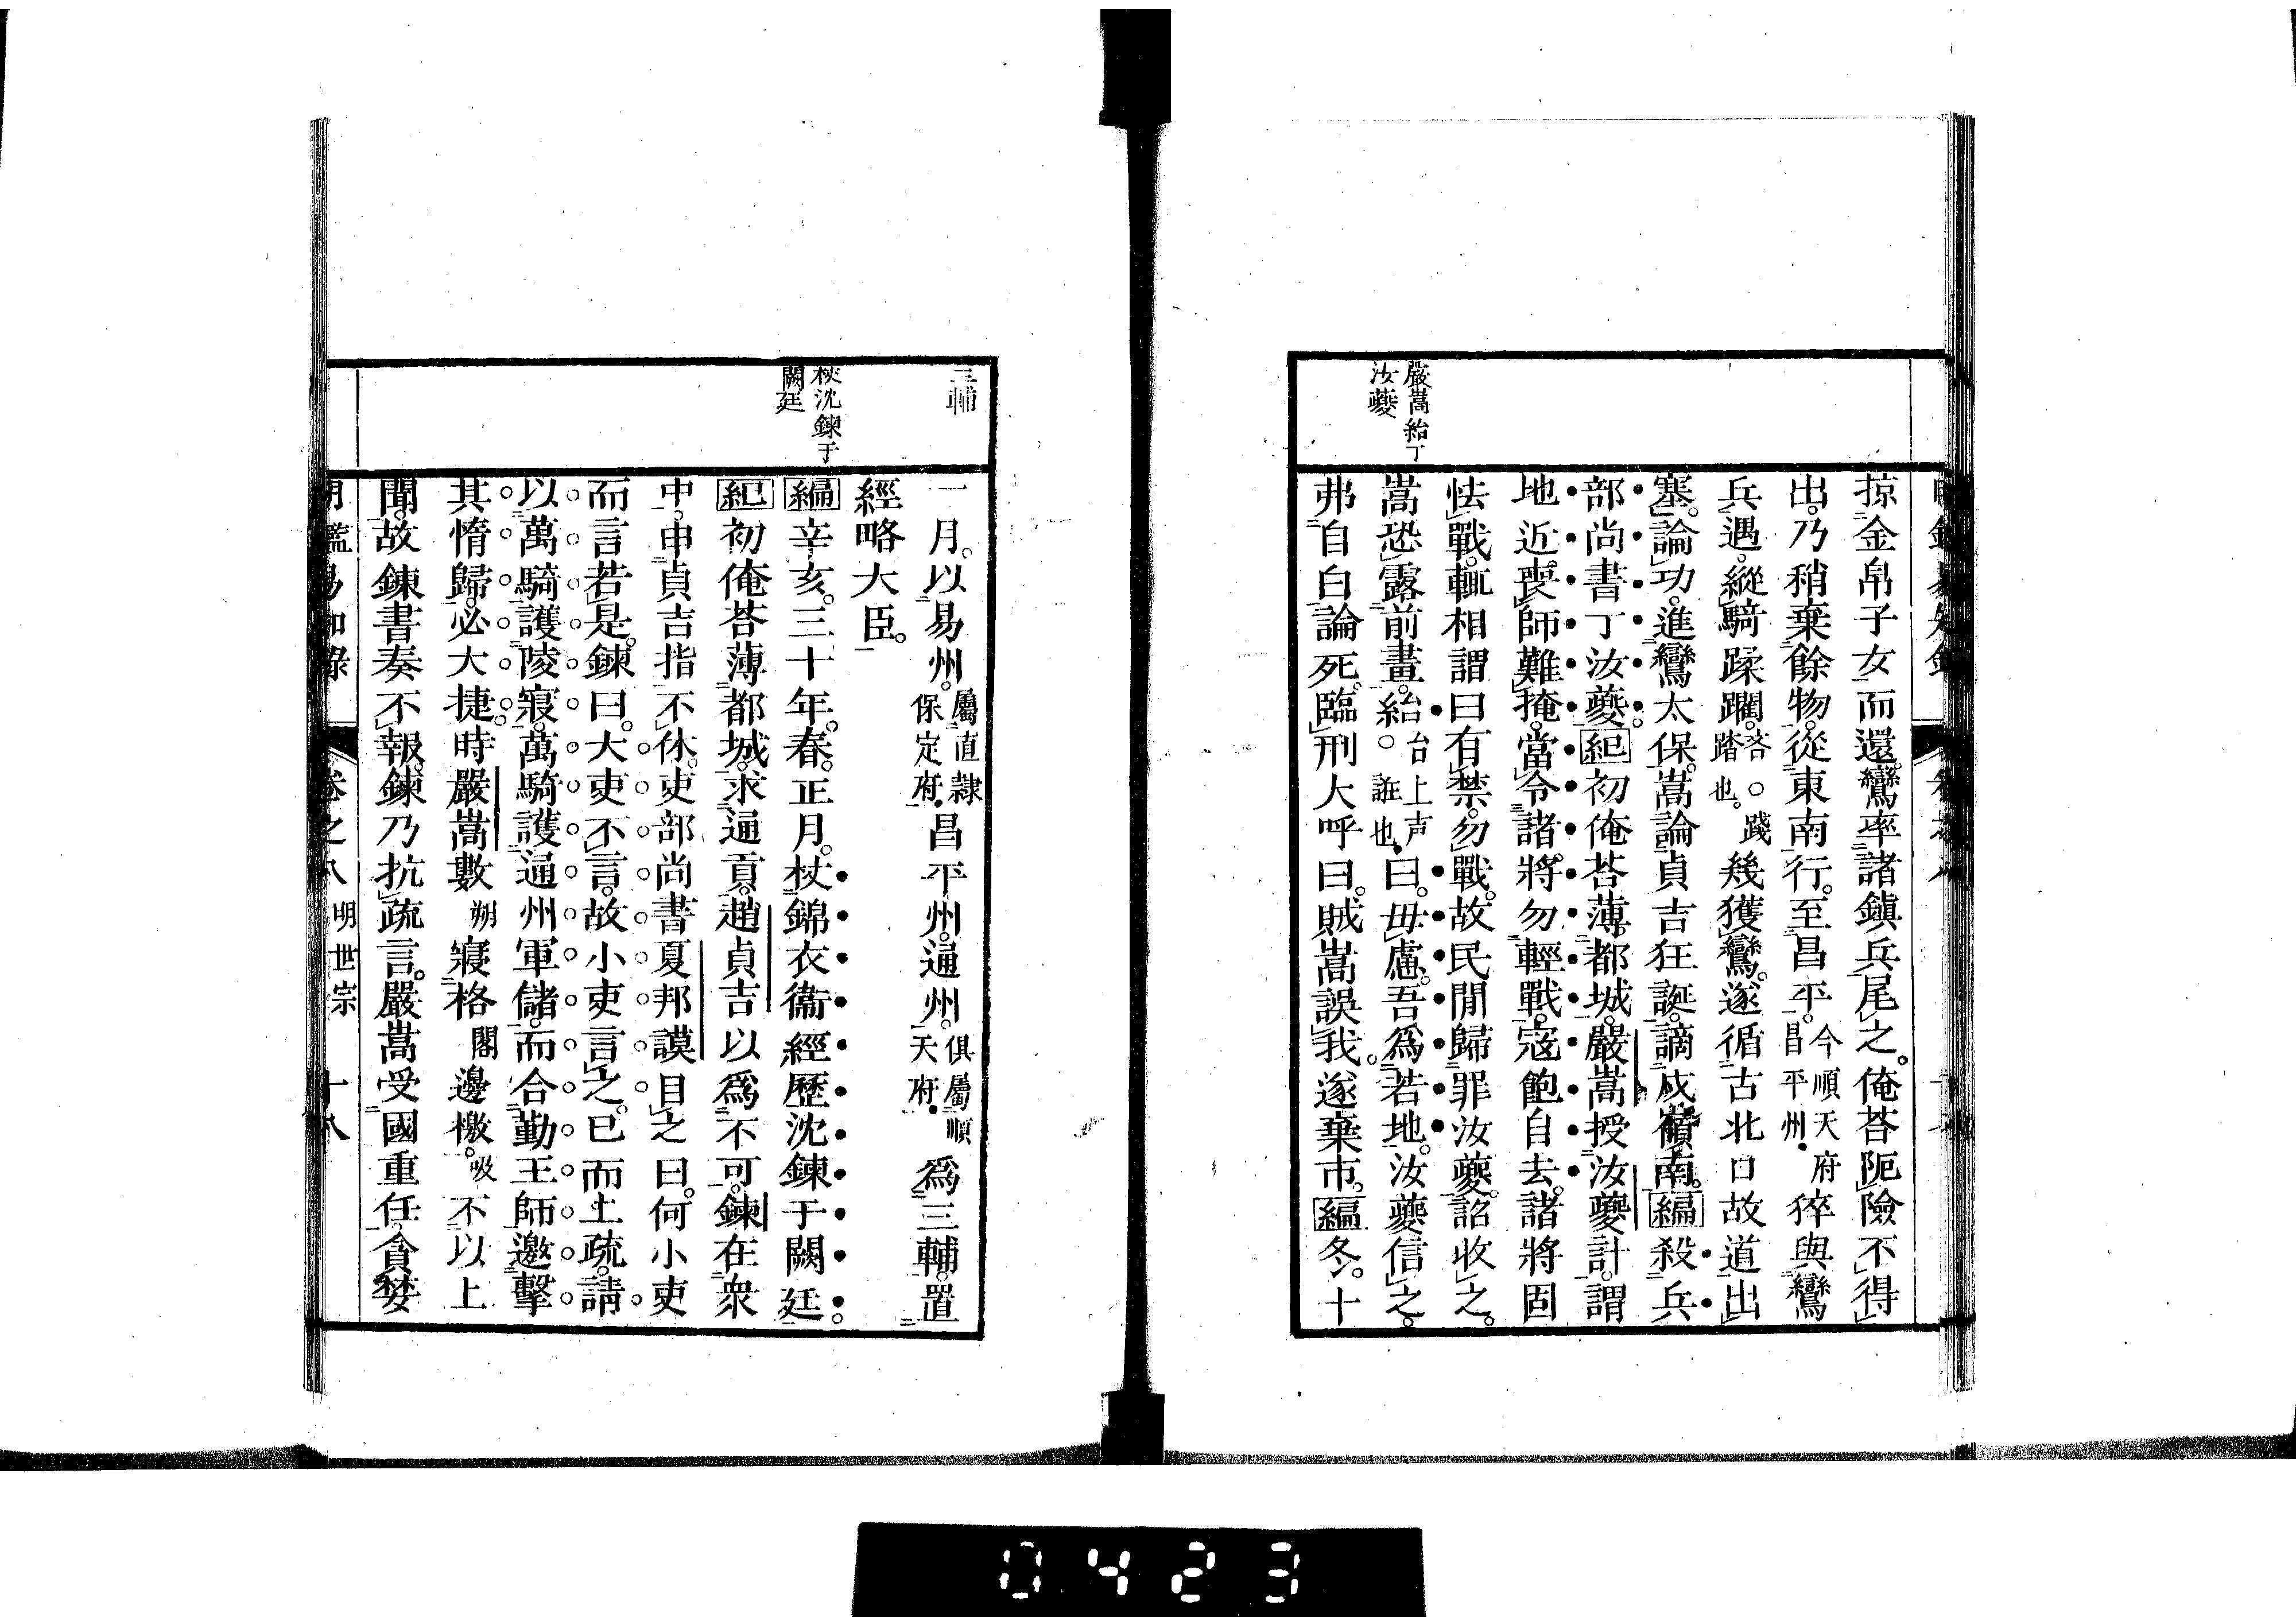 嚴嵩紿丁
汝夔
掠金帛子女而還。鸞率諸鎮兵尾之。俺荅阨險不得
出。乃稍棄餘物。從東南行。至昌平。今順天府昌平州。猝與鸞
兵遇。縱騎蹂躝。吝○踐踏也。幾獲鸞。遂循古北口故道出
塞。論功。進鸞太保。嵩論貞吉狂誕。謫戍嶺南。編殺兵
部尚書丁汝夔。紀初俺荅薄都城。嚴嵩授汝夔計。謂
地近。喪師難掩。當令諸將勿輕戰。寇飽自去。諸將固
怯戰。輒相謂曰有禁。勿戰。故民閒歸罪汝夔。詔收之。
嵩恐露前畫。紿台上声○誑也。曰。毋慮。吾爲若地。汝夔信之。
弗自白論死。臨刑大呼曰。賊嵩誤我。遂棄市。編冬。十
三輔
杖沈鍊于
闕廷
一月。以易州。屬直隷保定府。昌平州。通州。俱屬順天府。爲三輔。置
經略大臣。
編辛亥。三十年。春。正月。杖錦衣衞經歷沈鍊于闕廷。
紀初俺荅薄都城。求通貢。趙貞吉以爲不可。鍊在衆
中。申貞吉指不休。吏部尚書夏邦謨目之曰。何小吏
而言若是。鍊曰。大吏不言。故小吏言之。已而上疏。請
以萬騎護陵寢。萬騎護通州軍儲。而合勤王師邀擊
其惰歸。必大捷。時嚴嵩數朔寢格閣邊檄。吸不以上
聞。故鍊書奏不報。鍊乃抗疏言。嚴嵩受國重任。貪婪
明鑑易知錄 卷之八 明世宗 十八
0423